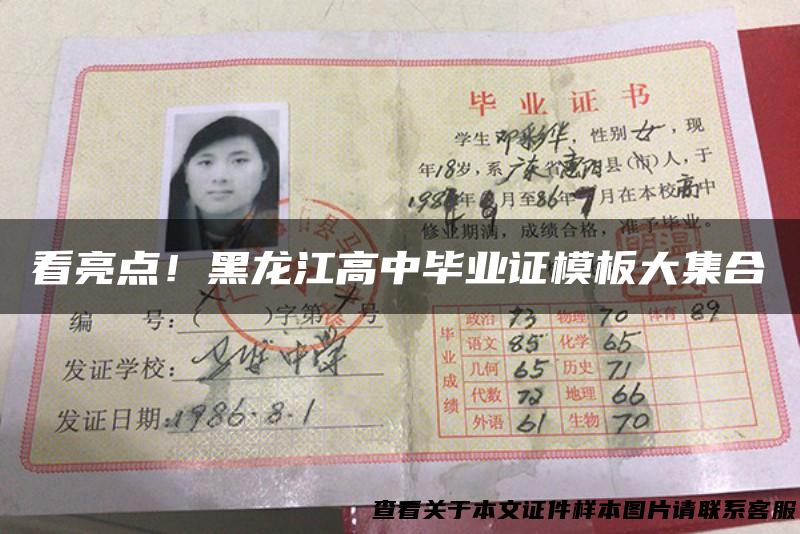 毕业证书
学生邓彩华，性别女，现
年18岁，系广东省惠阳县(市)人，于
1983年9月至86年7月在本校高中
修业期满，成绩合格，准予毕业。
看亮点！黑龙江高中毕业证模板大集合
编 号：( )字第 号
发证学校：马安中学
发证日期：1986.8.1
毕业成绩
政治 73 物理 70 体育 89
语文 85 化学 65
几何 65 历史 71
代数 72 地理 66
外语 61 生物 70
查看关于本文证件样本图片请联系客服